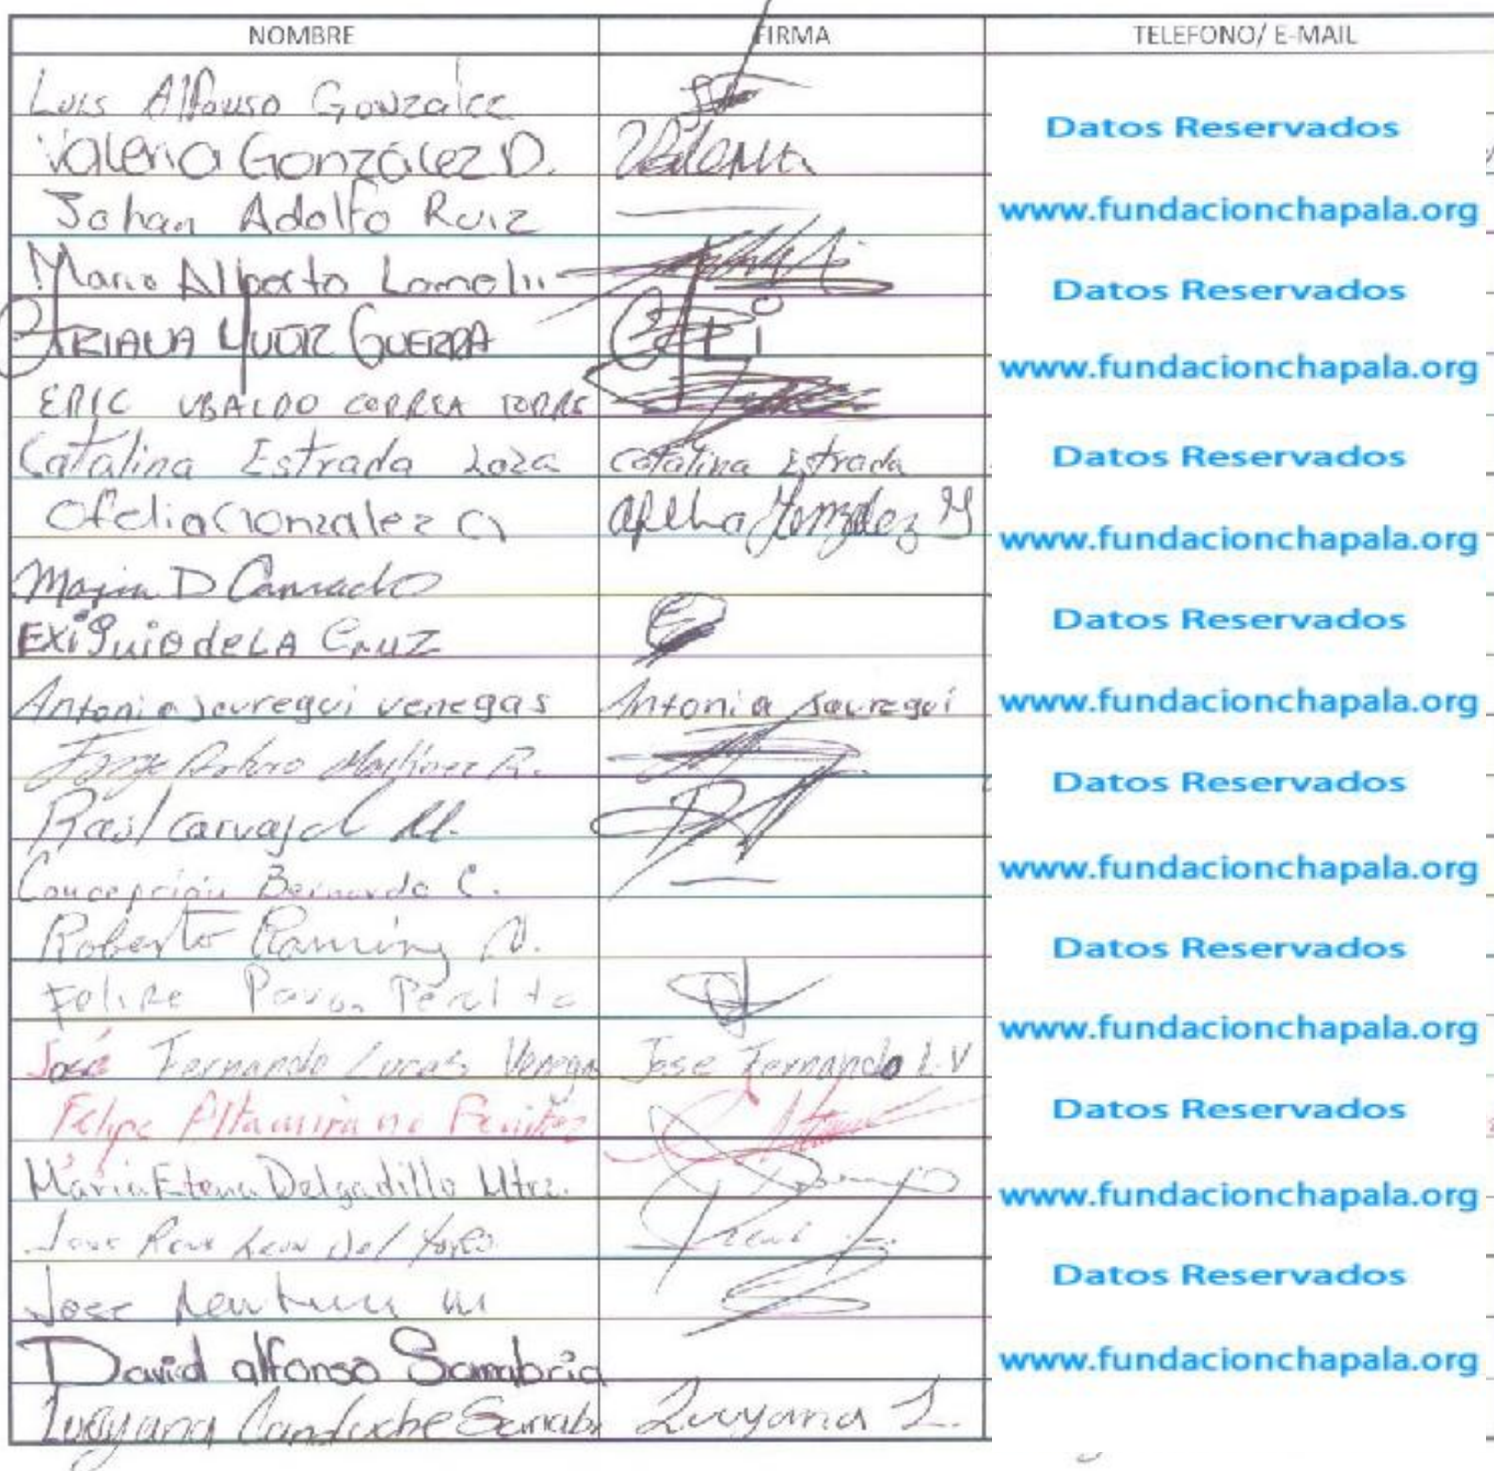 NOMBRE FIRMA TELEFONO/ E-MAIL
Luis Alfonso González
Valeria González D. Valeria
Datos Reservados
Johan Adolfo Ruiz
www.fundacionchapala.org
Mario Alberto Lomelii
Datos Reservados
ARIANA GUERRA ARi
www.fundacionchapala.org
ERIC UBALDO CORREA TORRES
Catalina Estrada Loza Catalina Estrada
Datos Reservados
Ofelia Gonzalez G Ofelia González G
www.fundacionchapala.org
Maria D Camacho
EXiQuio de LA CruZ
Datos Reservados
Antonia Jauregui venegas Antonia Jauregui
www.fundacionchapala.org
Jorge Arturo Martinez R.
Datos Reservados
Raúl Carvajal M.
Concepción Bernardo C.
www.fundacionchapala.org
Roberto Ramírez
Datos Reservados
Felipe Pavon Peralta
José Fernando Lucas Venega Jose Fernando L.V
www.fundacionchapala.org
Felipe Altamirano Benitez
Datos Reservados
María Elena Delgadillo Mtrz.
www.fundacionchapala.org
Jose Rene Leon Del
Jose
Datos Reservados
David alfonso Sanabria
www.fundacionchapala.org
Luayana Landuche Luayana L.